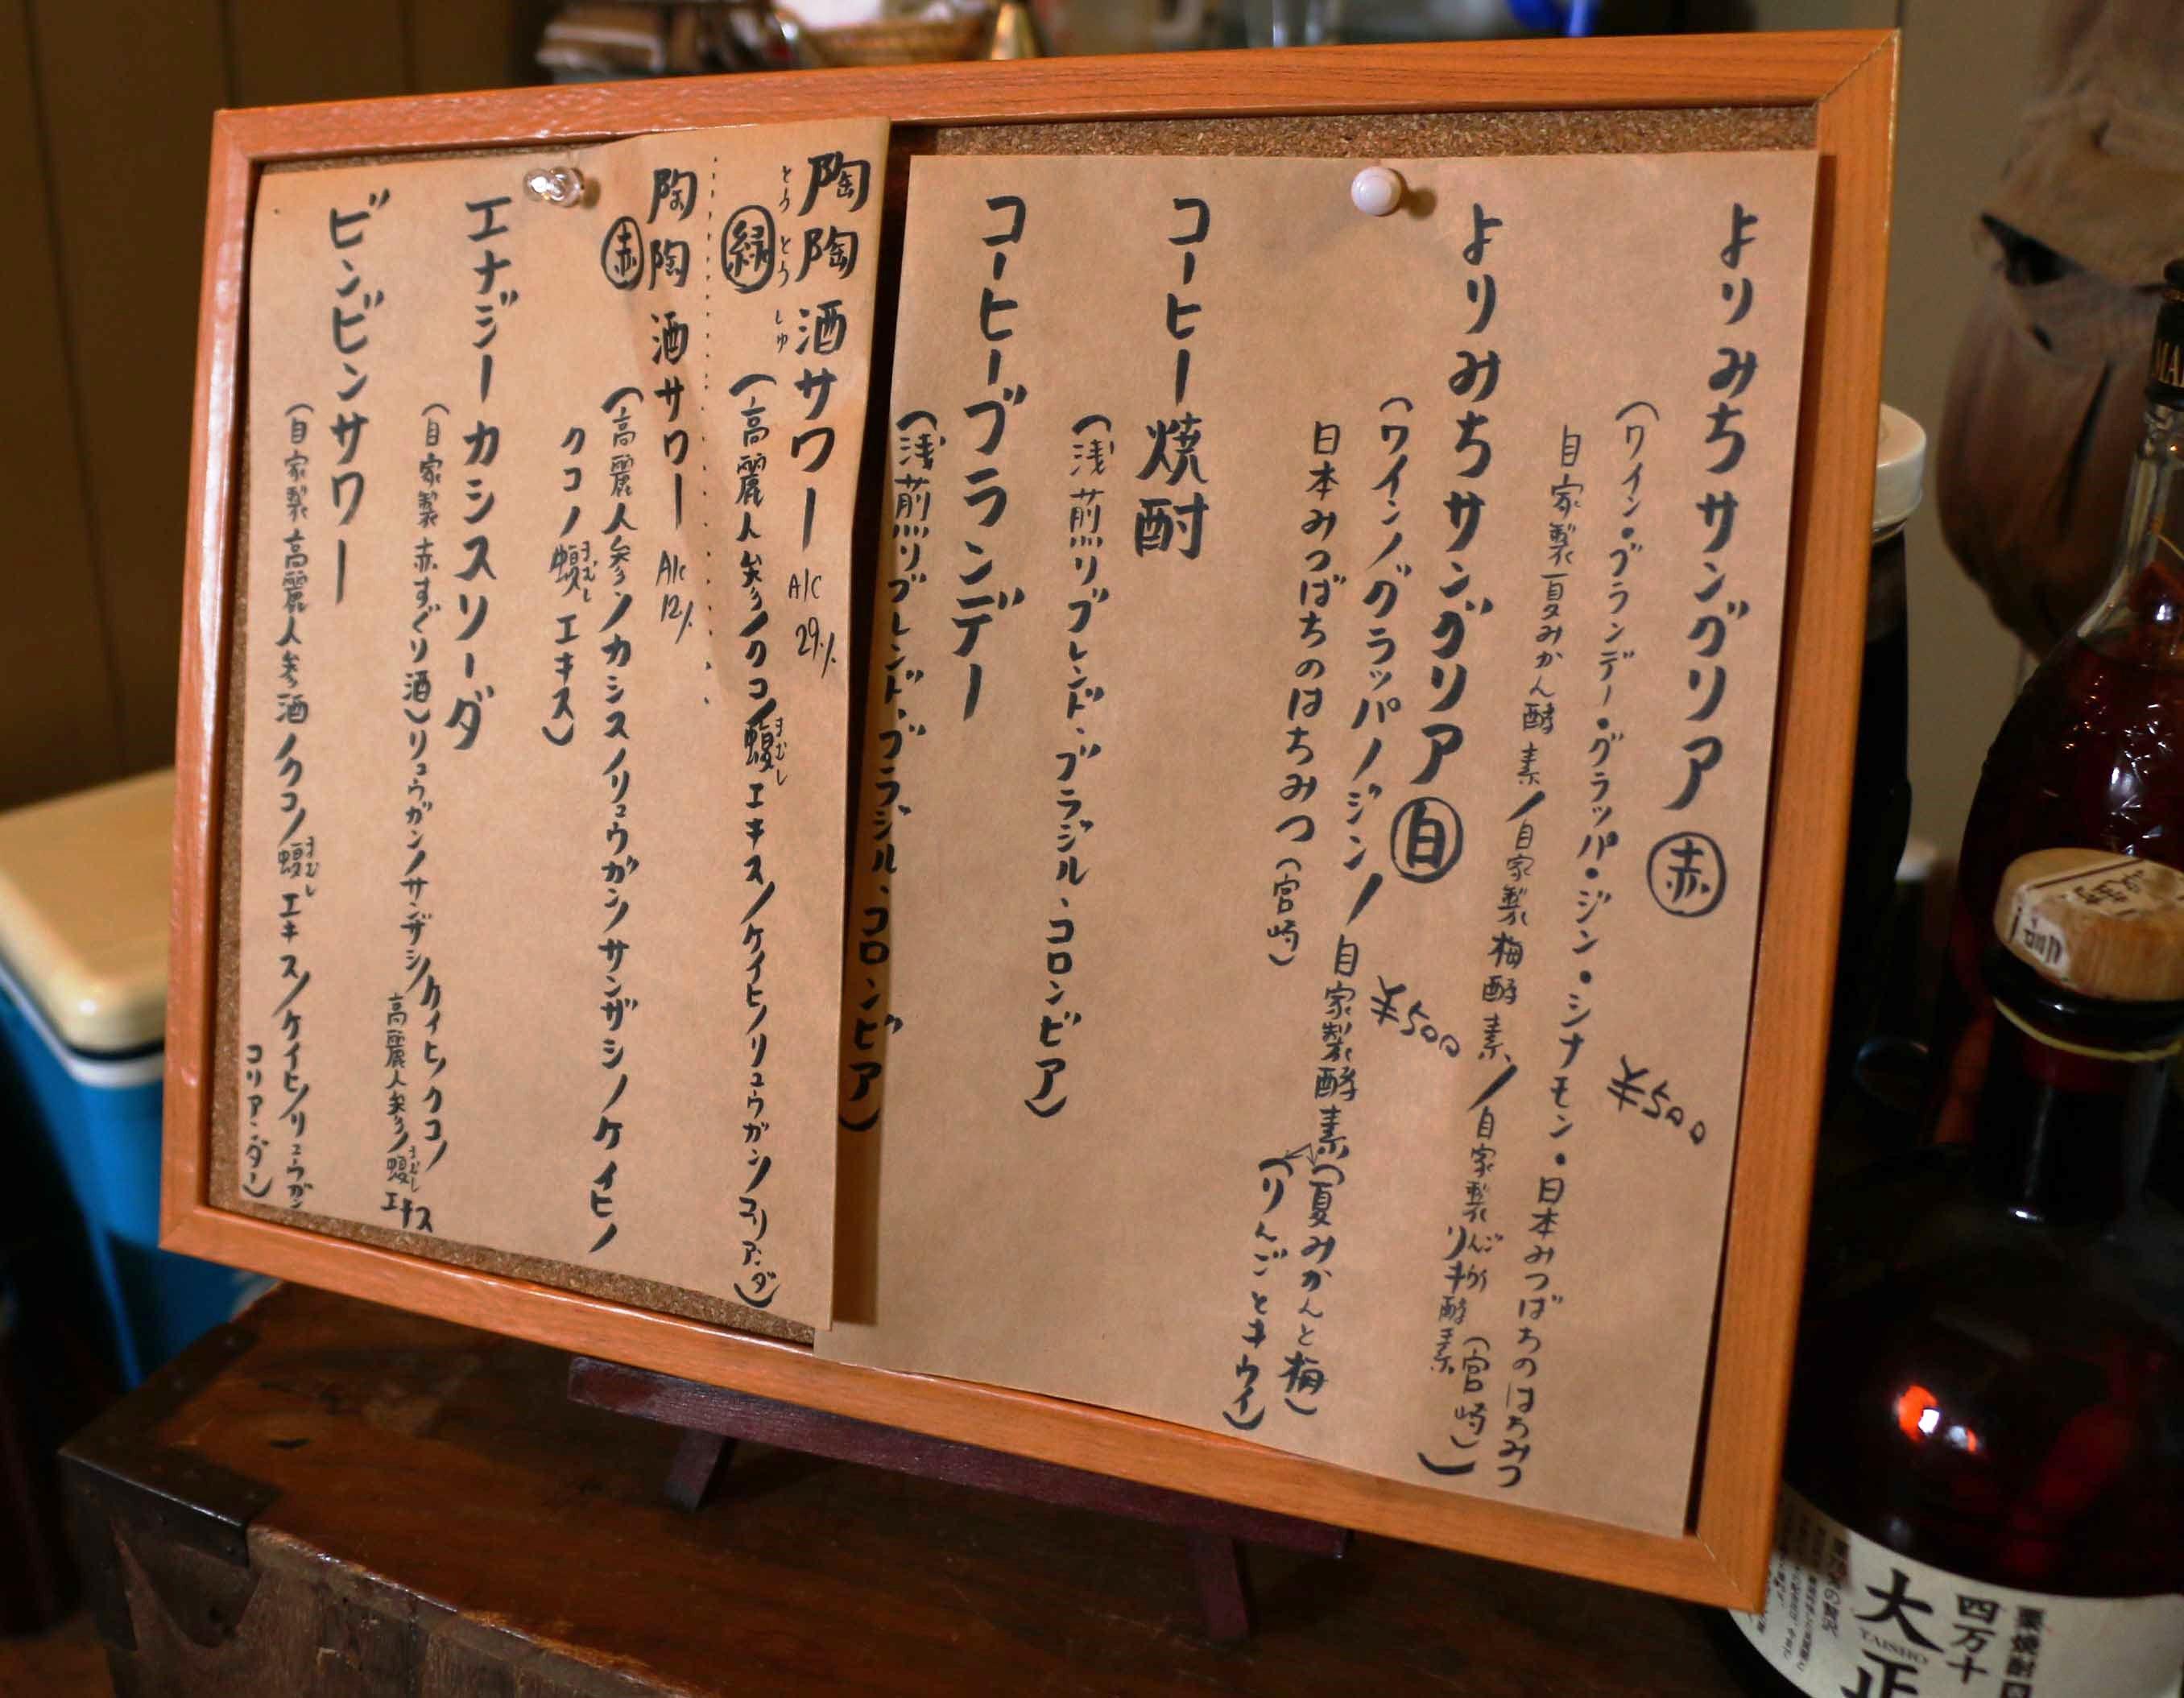 よりみちサングリア 赤
¥500
(ワイン・ブランデー・グラッパ・ジン・シナモン・日本みつばちのはちみつ
(宮崎)
自家製夏みかん酵素/自家製梅酵素/自家製りんごキウイ酵素)
よりみちサングリア 白
¥500
(ワイン/グラッパ/ジン/自家製酵素(夏みかんと梅)
(りんごとキウイ)
日本みつばちのはちみつ(宮崎)
コーヒー焼酎
(浅煎りブレンド、ブラジル、コロンビア)
コーヒーブランデー
(浅煎りブレンド、ブラジル、コロンビア)
陶陶酒サワー Alc 29%
とうとうしゅ
緑
(高麗人参/クコ/蝮エキス/ケイヒ/リュウガン/コリアンダー)
まむし
陶陶酒サワー Alc 12%
赤
(高麗人参/カシス/リュウガン/サンザシ/ケイヒ/
クコ/蝮エキス)
まむし
エナジーカシスソーダ
(自家製赤すぐり酒)リュウガン/サンザシ/ケイヒ/クコ/
高麗人参/蝮エキス
まむし
ビンビンサワー
(自家製高麗人参酒/クコ/蝮エキス/ケイヒ/リュウガン
まむし
コリアンダー)
栗焼酎
四万十
大正
TAISHO